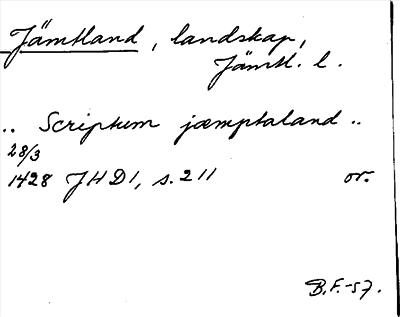 Jämtland, landskap,
Jämtl. l.
.. Scriptum jæmptaland ..
28/3
1428 JHD1, s. 211 or.
B.F.-57.